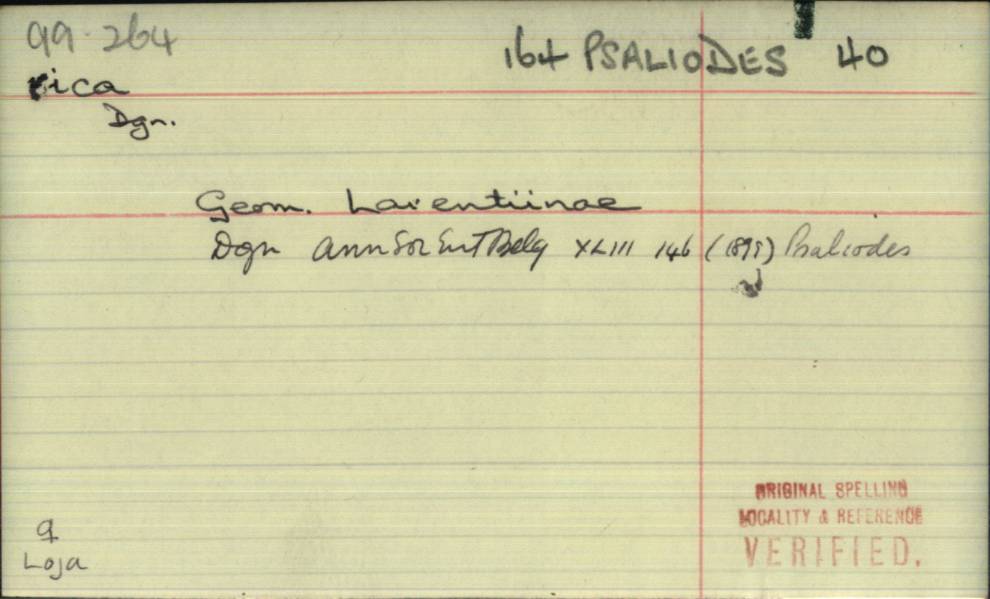 99-264
164 PSALIODES 40
rica
Dgn.
Geom. Larentiinae
Dgn Ann Soc Ent Belg XLIII 146 (1899) Psaliodes
♀
Loja
ORIGINAL SPELLING
LOCALITY & REFERENCE
VERIFIED.